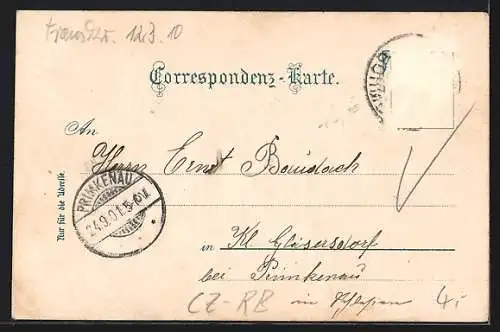 12.3.10
Correspondenz-Karte.
An
Herrn Ernst Baudach
Nur für die Adresse.
PRIMKENAU
24.9.01.5-6N.
in Kl Gläsersdorf
bei Primkenau
in Schlesien
CZ-RB
4.-